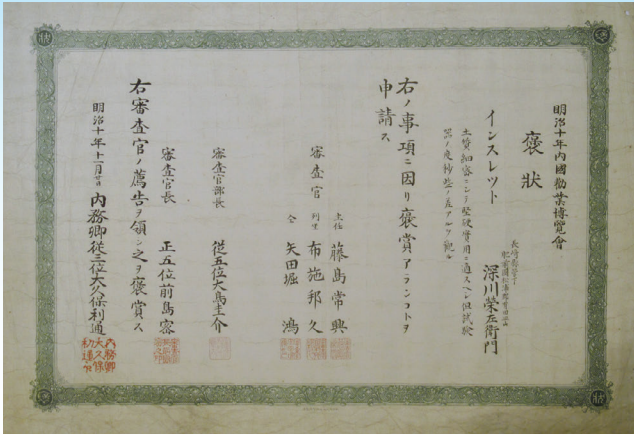 明治十年内國勸業博覽會
褒狀
長崎縣管下
肥前國松浦郡有田皿山
深川榮左衛門
インスレツト
土質細密ニシテ堅硬實用ニ適スヘシ但試驗
器ノ度秒些ノ差アルヲ觀ル
右ノ事項ニ因リ褒賞アランヿヲ
申請ス
審査官 主任 藤島常興
列里 布施邦久
仝 矢田堀鴻
審査官部長 從五位大鳥圭介
審査官長 正五位前島密
右審査官ノ薦告ヲ領シ之ヲ褒賞ス
明治十年十一月廿日 内務卿從三位大久保利通
内務卿
大久保
利通